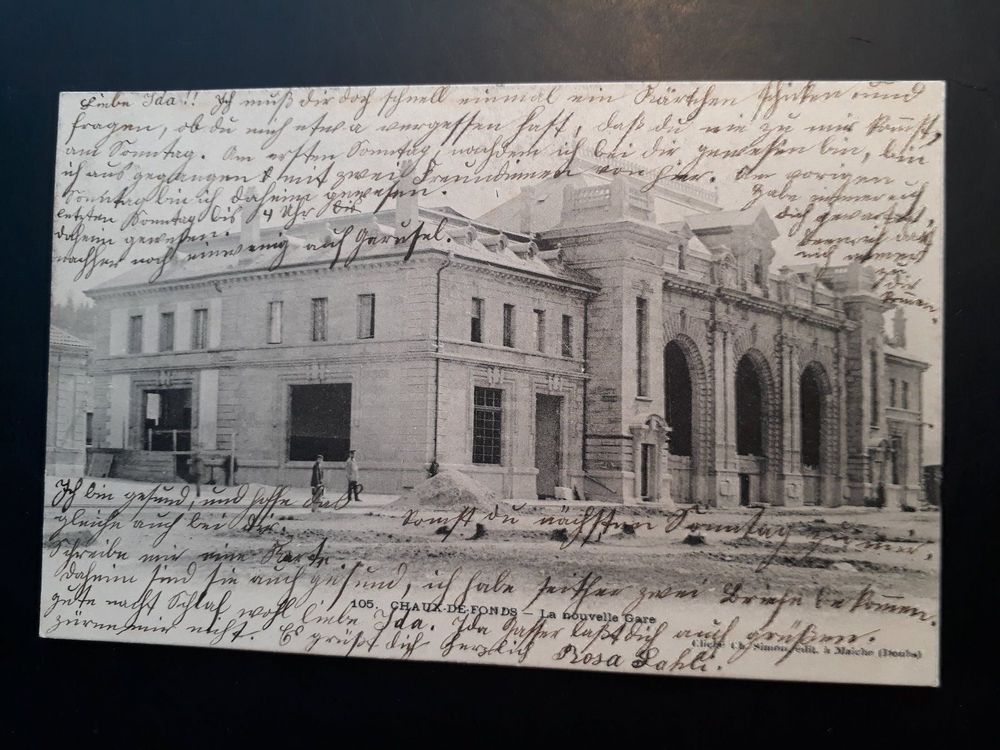 Liebe Ida!! Ich muß dir doch schnell einmal ein Kärtchen schicken und
fragen, ob du mich etwa vergessen hast, daß du nie zu mir kommst,
am Sonntag. Am ersten Sonntag, nachdem ich bei dir gewesen bin, bin
ich ausgegangen mit zwei Freundinnen von hier. Am vorigen
Sonntag bin ich daheim gewesen.
letzten Sonntag bis 4 Uhr bis
daheim gewesen.
nachher noch ein wenig auf Garusel.
habe immer
dich gewartet,
ich daß
mir immer
zu
dir
kommen.
Ich bin gesund, und hoffe das
gleiche auch bei dir.
Komst du nächsten Sonntag zu mir.
Schreibe mir eine Karte.
Daheim sind sie auch gesund, ich habe seither zwei Briefe bekommen.
105. CHAUX-DE-FONDS — La nouvelle Gare
gute nacht schlaf wohl liebe Ida. Ida Gasser laßt dich auch grüßen.
zürne mir nicht. Es grüßt dich herzlich Rosa Dähli.
Cliché Ch. Simon, édit. à Maîche (Doubs)